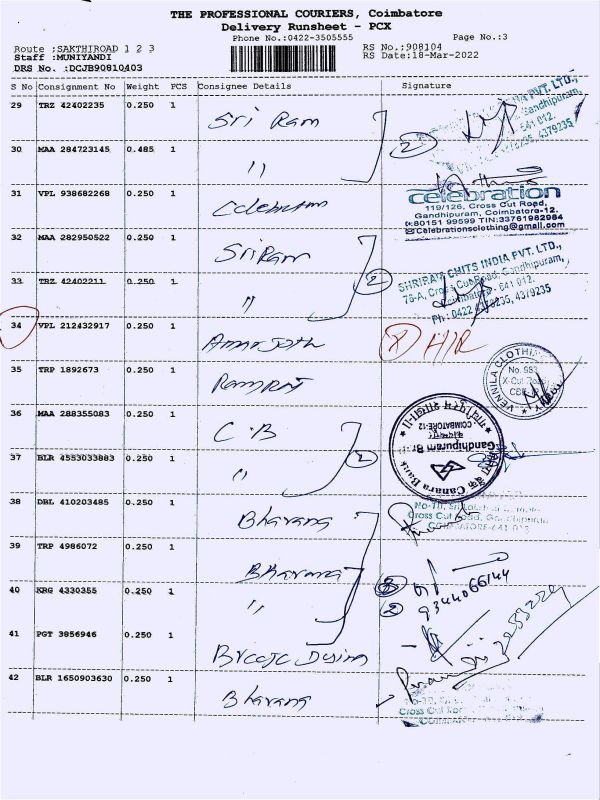 THE PROFESSIONAL COURIERS, Coimbatore
Delivery Runsheet - PCX
Phone No.:0422-3505555
Page No.:3
Route :SAKTHIROAD 1 2 3
Staff :MUNIYANDI
DRS No. :DCJB90810403
RS No.:908104
RS Date:18-Mar-2022
S No Consignment No Weight PCS Consignee Details Signature
29 TRZ 42402235 0.250 1 Sri Ram
2
PVT. LTD.,
Gandhipuram,
641 012.
4379235
30 MAA 284723145 0.485 1 "
31 VPL 938682268 0.250 1 Celebration
celebration
119/126, Cross Cut Road,
Gandhipuram, Coimbatore-12.
80151 99599 TIN:33761982984
Celebrationsclothing@gmail.com
32 MAA 282950522 0.250 1 Sri Ram
2
SHRIRAM CHITS INDIA PVT. LTD.,
78-A, Cross Cut Road, Gandhipuram,
Coimbatore - 641 012.
Ph : 0422 4379235, 4379235
33 TRZ 42402211 0.250 1 "
34 VPL 212432917 0.250 1
35 TRP 1892673 0.250 1 Ramraj
VENNILA CLOTHING
No. 983
X-Cut Road
CBE
36 MAA 288355083 0.250 1 C.B
2
COIMBATORE-12
Gandhipuram Br
Canara Bank
37 BLR 4553033883 0.250 1 "
38 DBL 410203485 0.250 1 Bharang
Cross Cut Road, Gandhipuram
COIMBATORE-641 012
39 TRP 4986072 0.250 1 Bharang
3
40 KRG 4330355 0.250 1 "
2 9344066144
41 PGT 3856946 0.250 1
42 BLR 1650903630 0.250 1 Bharang
Cross Cut